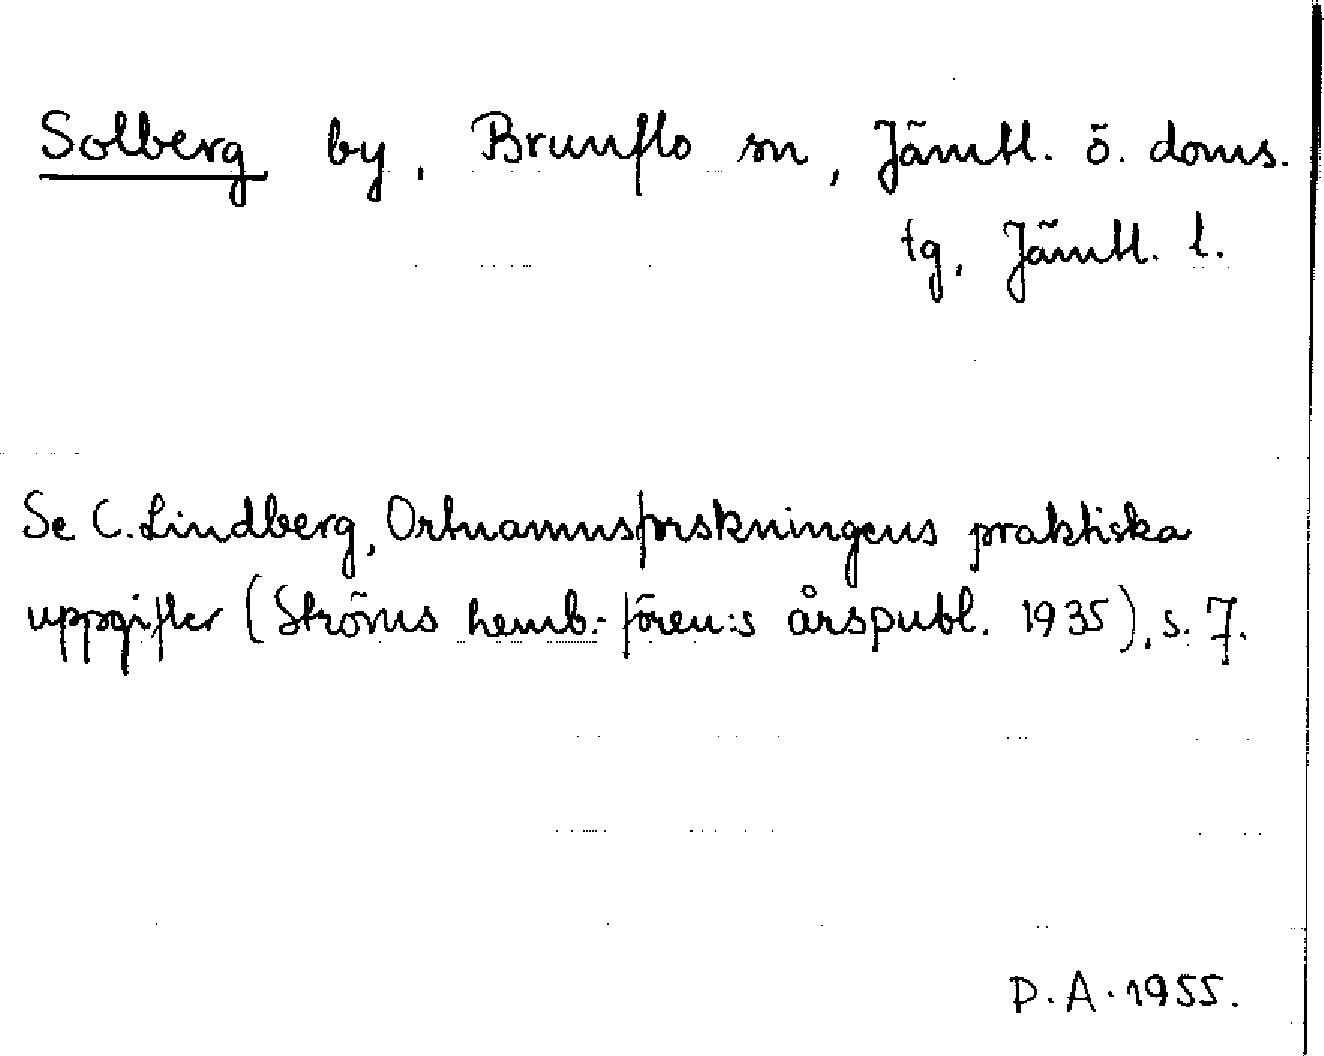 Solberg by, Brunflo sn, Jämtl. ö. doms.
tg, Jämtl. l.
Se C. Lindberg, Ortnamnsforskningens praktiska
uppgifter (Ströms hemb.-fören:s årspubl. 1935), s. 7.
D. A. 1955.